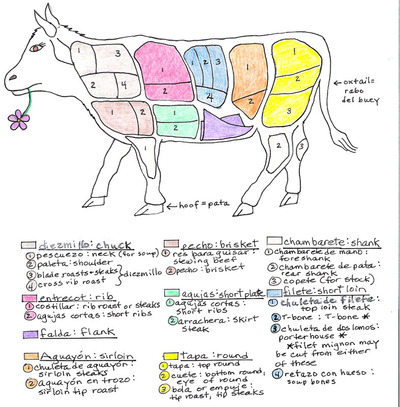 1
3
2
4
1
2
1
2
3
4
1
1
2
3
1
2
1
2
1
2
1
2
3
← oxtail=
rabo
del buey
→ hoof = pata
diezmillo: chuck
1 pescuezo: neck (for soup)
2 paleta: shoulder
3 blade roasts + steaks
4 cross rib roast
} diezmillo
entrecot: rib
1 costillar: rib roast or steaks
2 agujas cortas: short ribs
falda: flank
Aguayón: sirloin
1 chuleta de aguayón:
sirloin steaks
2 aguayón en trozo:
sirloin tip roast
pecho: brisket
1 res para guisar:
stewing beef
2 pecho: brisket
agujas: short plate
1 agujas cortas:
short ribs
2 arrachera: skirt
steak
tapa: round
1 tapa: top round
2 cuete: bottom round,
eye of round
3 bola or empuje:
tip roast, tip steaks
chambarete: shank
1 chambarete de mano:
foreshank
2 chambarete de pata:
rear shank
3 copete (for stock)
filete: short loin
1 chuleta de filete:
top loin steak
2 T-bone : T-bone *
3 chuleta de dos lomos:
porterhouse *
*filet mignon may
be cut from either
of these
4 retazo con hueso:
soup bones